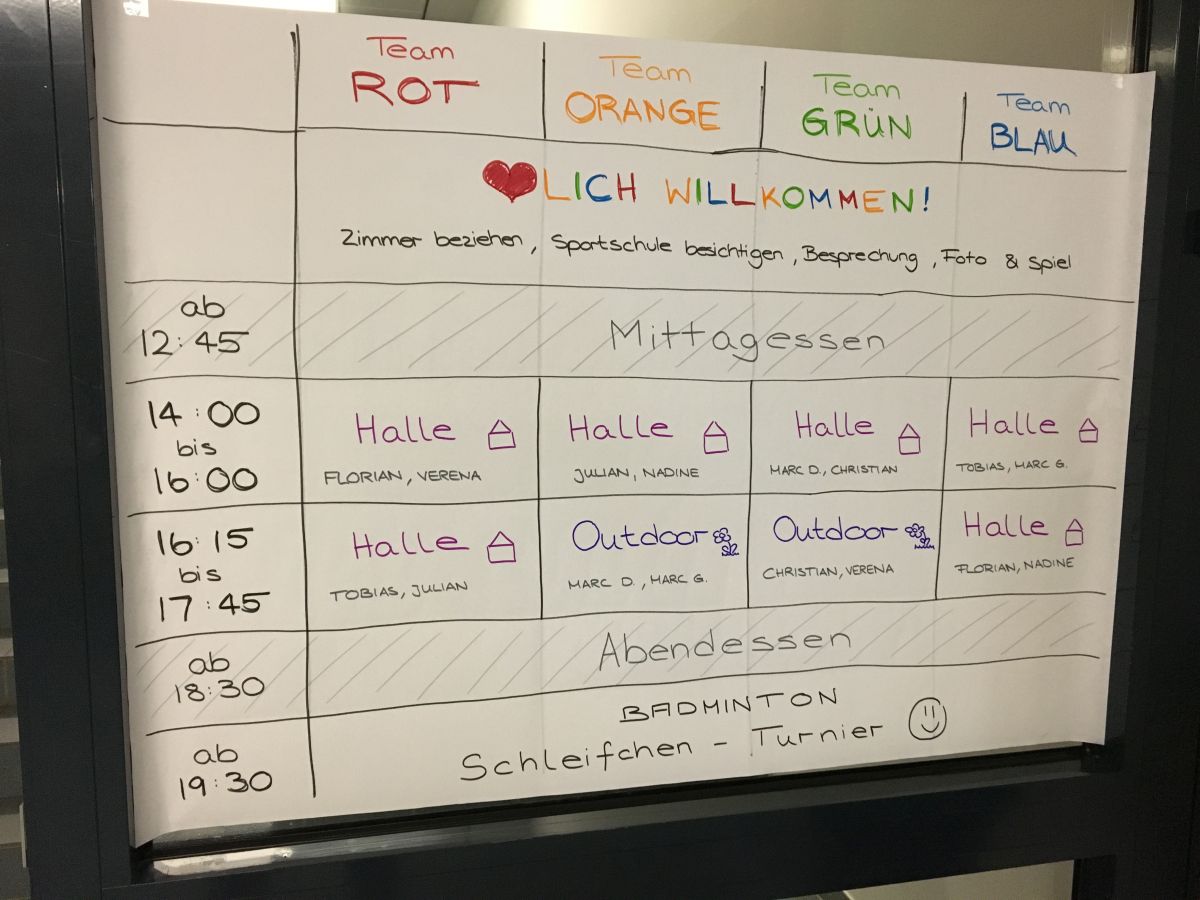 Team ROT
Team ORANGE
Team GRÜN
Team BLAU
LICH WILLKOMMEN!
Zimmer beziehen, Sportschule besichtigen, Besprechung, Foto & Spiel
ab 12:45
Mittagessen
14:00 bis 16:00
Halle
FLORIAN, VERENA
Halle
JULIAN, NADINE
Halle
MARC D., CHRISTIAN
Halle
TOBIAS, MARC G.
16:15 bis 17:45
Halle
TOBIAS, JULIAN
Outdoor
MARC D., MARC G.
Outdoor
CHRISTIAN, VERENA
Halle
FLORIAN, NADINE
ab 18:30
Abendessen
ab 19:30
BADMINTON
Schleifchen - Turnier